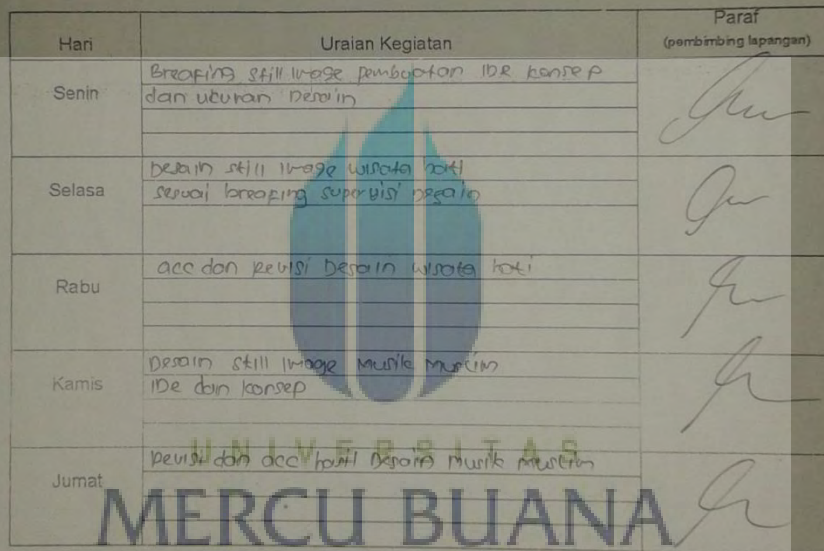 Hari Uraian Kegiatan Paraf
(pembimbing lapangan)
Breafing still image pembuatan IDE konsep
Senin dan ukuran Desain
Desain still image wisata hati
Selasa sesuai breafing supervisi Desain
acc dan Revisi Desain wisata hati
Rabu
Desain still image Musik Muslim
Kamis IDe dan konsep
UNIVERSITAS
Revisi dan acc hasil Desain Musik Muslim
Jumat
MERCU BUANA